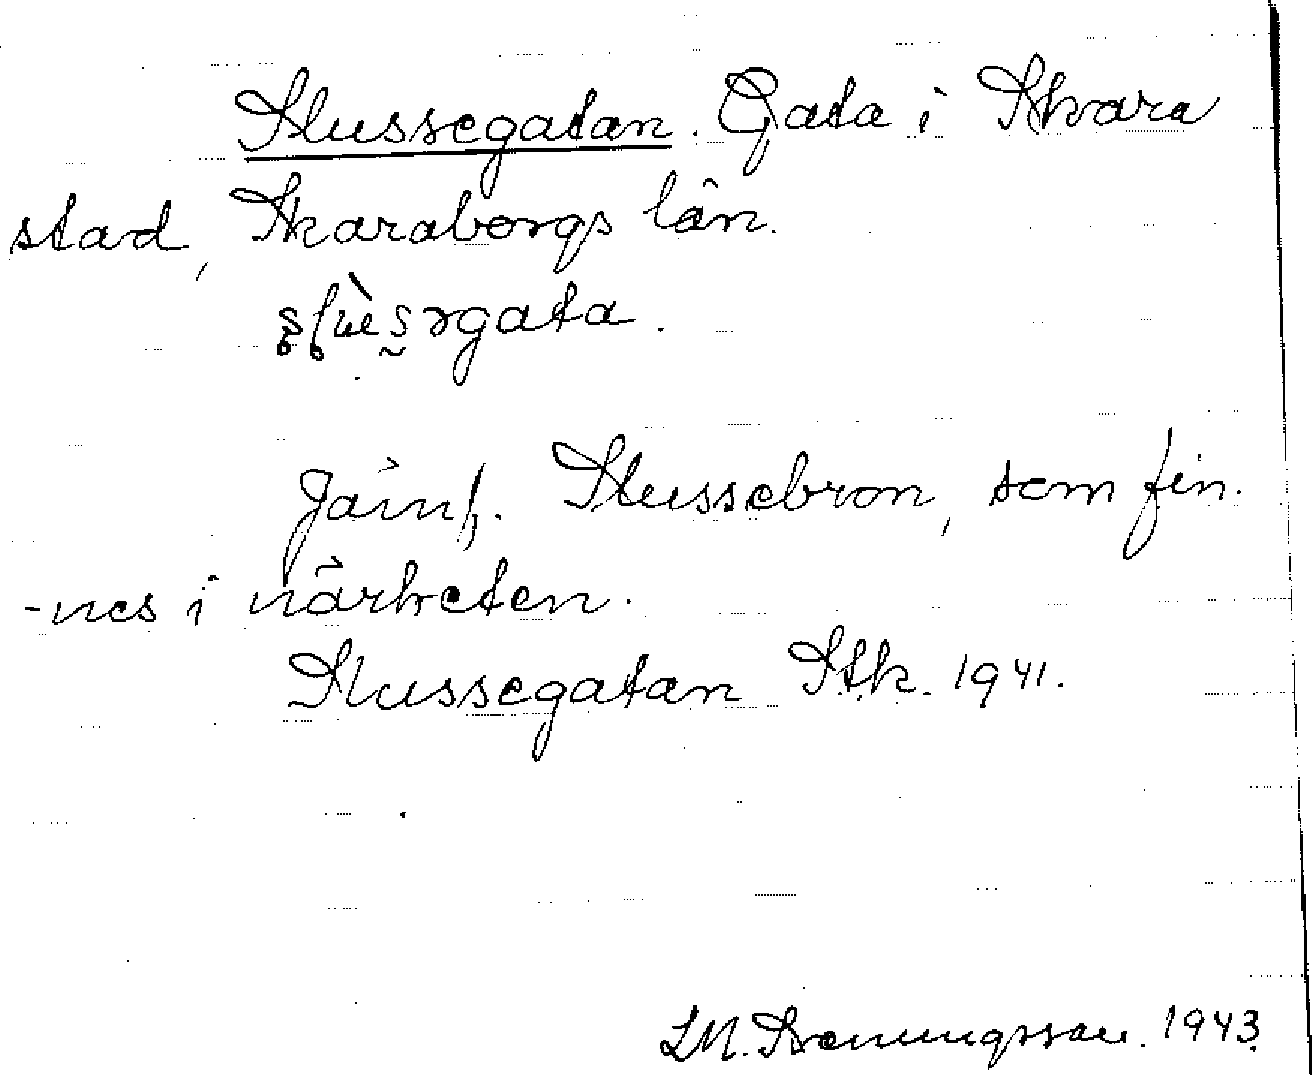 Slussegatan. Gata i Skara
stad, Skaraborgs län.
Jämf. Slussebron, som fin-
-nes i närheten.
Slussegatan Stk. 1941.
1943.